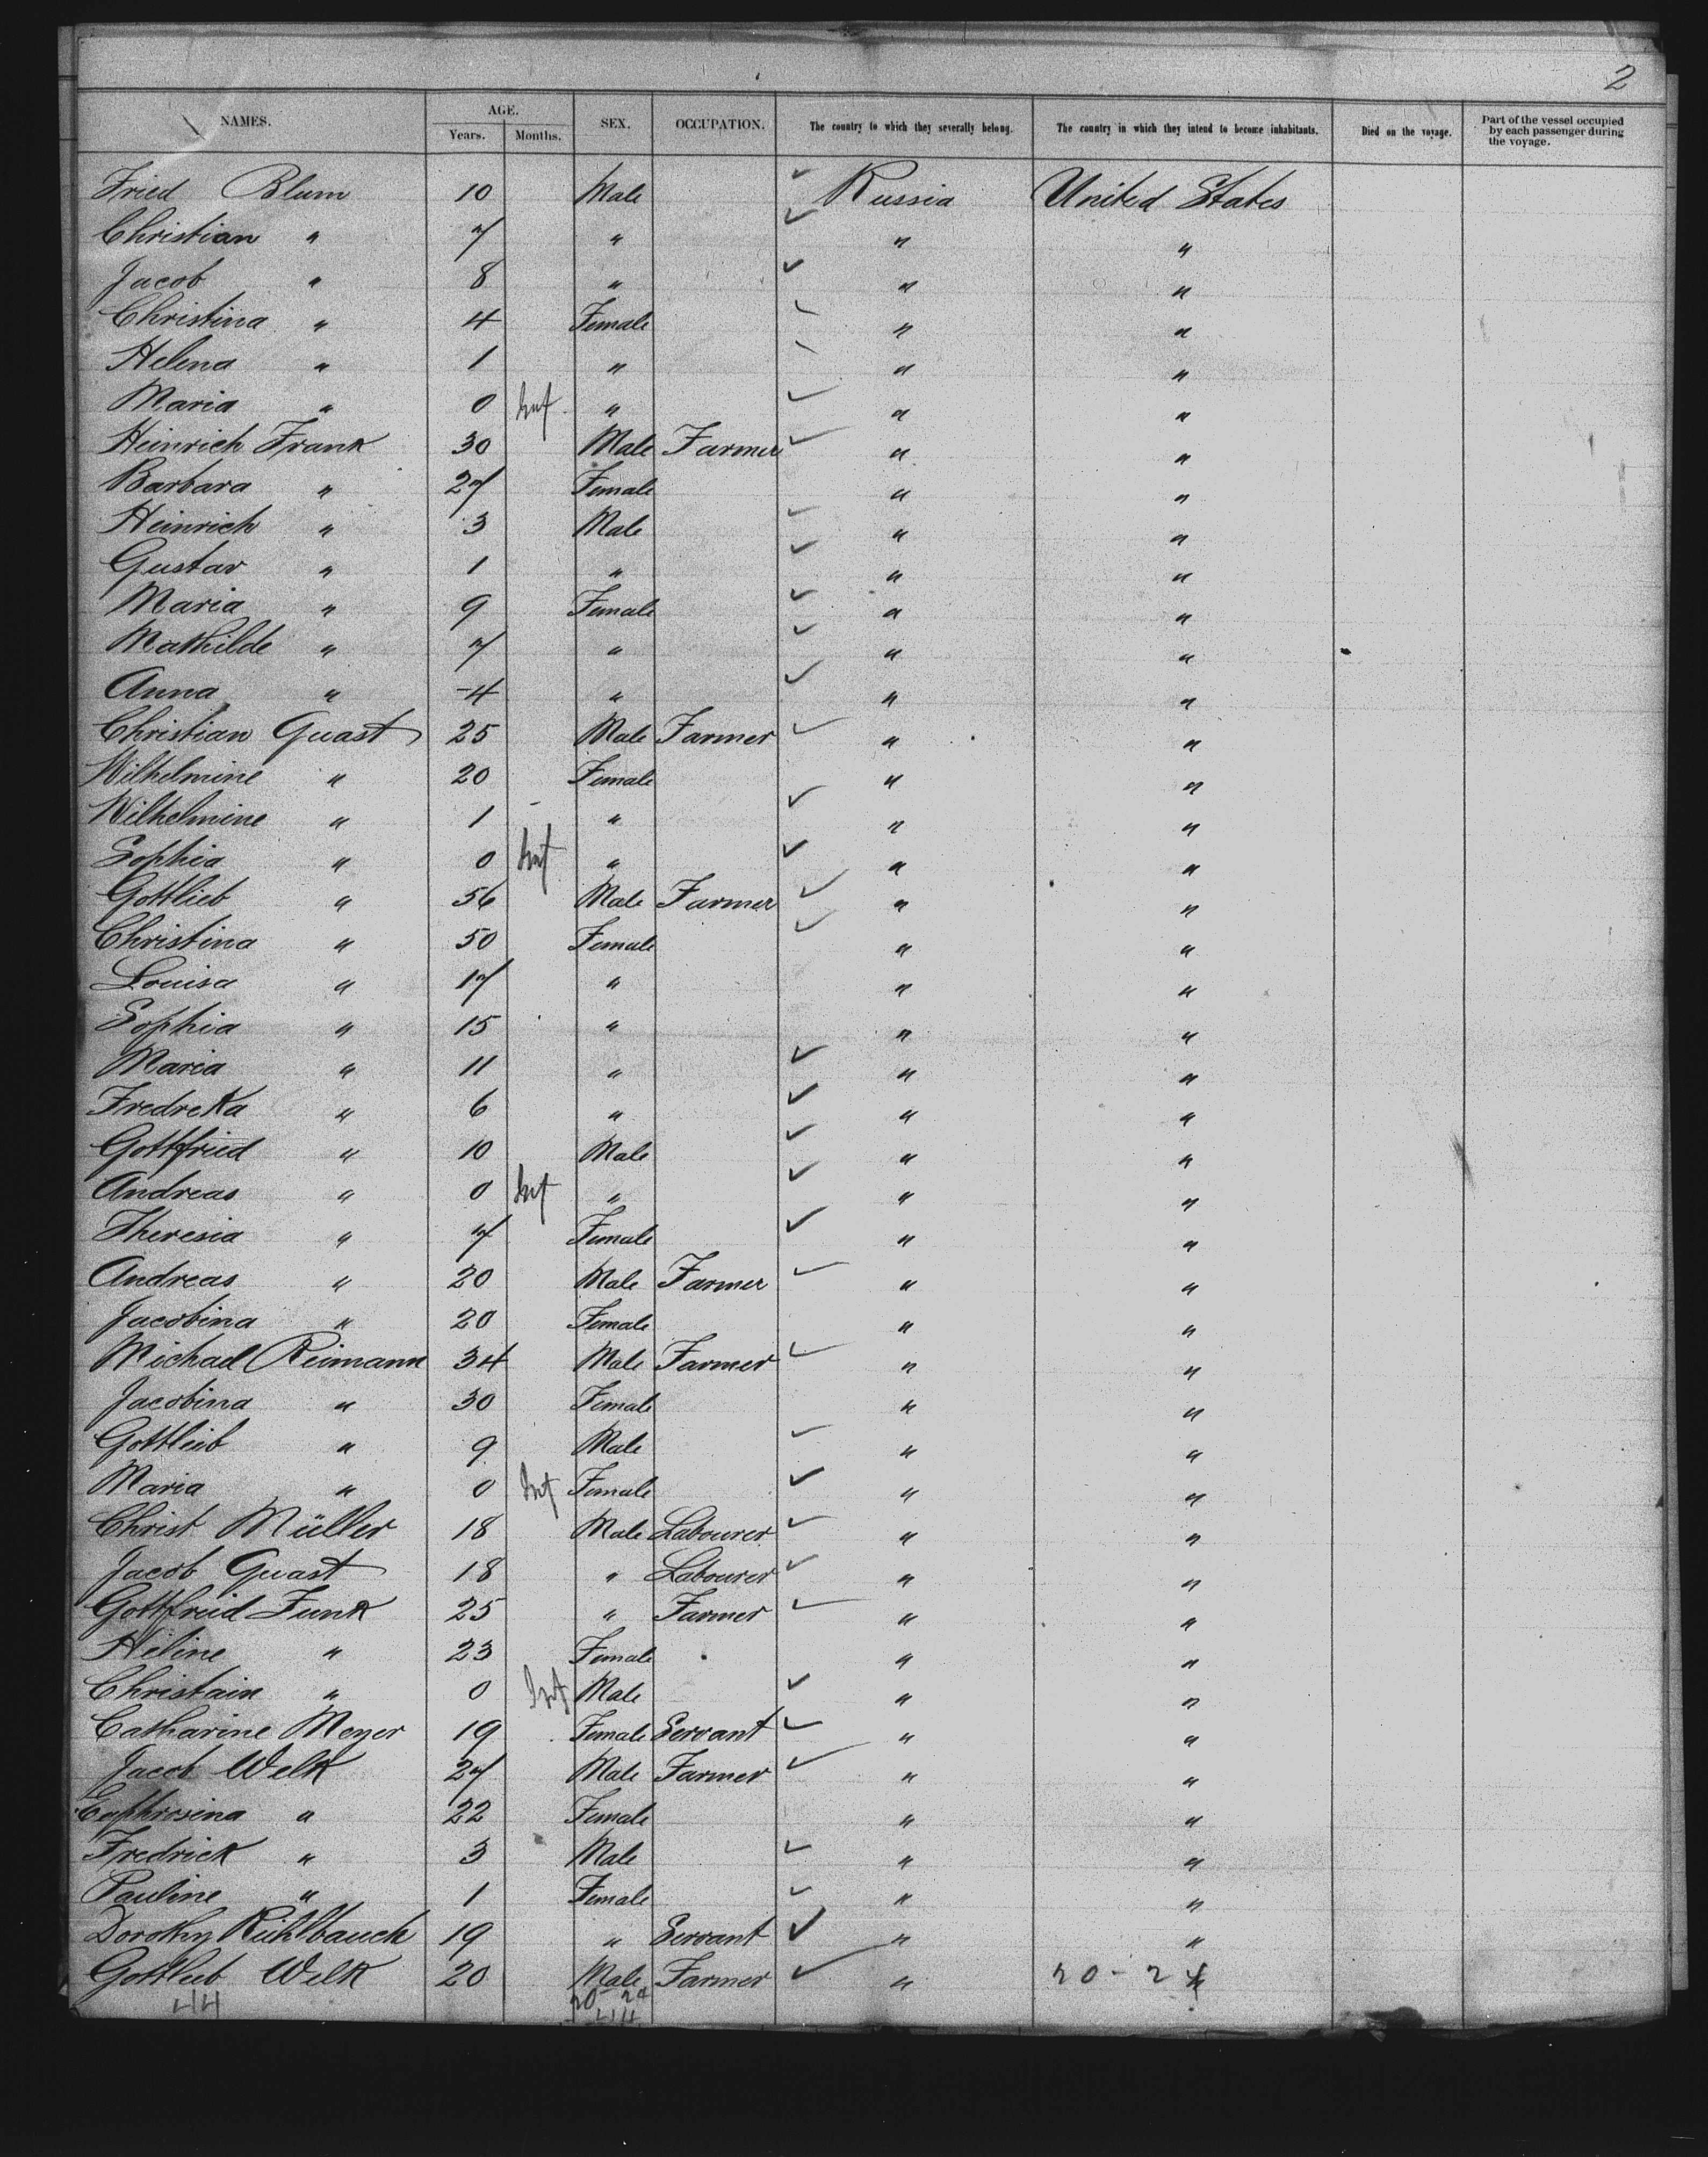 2
NAMES. AGE. Years. Months. SEX. OCCUPATION. The country to which they severally belong. The country in which they intend to become inhabitants. Died on the voyage. Part of the vessel occupied by each passenger during the voyage.
Fried Blum 10 Male Russia United States
Christian " 7 " " "
Jacob " 8 " " "
Christina " 4 Female " "
Helena " 1 " " "
Maria " 0 Inf. " " "
Heinrich Frank 30 Male Farmer " "
Barbara " 27 Female " "
Heinrich " 3 Male " "
Gustav " 1 " " "
Maria " 9 Female " "
Mathilde " 7 " " "
Anna " 4 " " "
Christian Quast 25 Male Farmer " "
Wilhelmine " 20 Female " "
Wilhelmine " 1 " " "
Sophia " 0 Inf " " "
Gottlieb " 56 Male Farmer " "
Christina " 50 Female " "
Louisa " 17 " " "
Sophia " 15 " " "
Maria " 11 " " "
Fredreka " 6 " " "
Gottfried " 10 Male " "
Andreas " 0 Inf " " "
Theresia " 7 Female " "
Andreas " 20 Male Farmer " "
Jacobina " 20 Female " "
Michael Reimann 34 Male Farmer " "
Jacobina " 30 Female " "
Gottlieb " 9 Male " "
Maria " 0 Inf Female " "
Christ Müller 18 Male Labourer " "
Jacob Quast 18 " Labourer " "
Gottfreid Funk 25 " Farmer " "
Heline " 23 Female " "
Christain " 0 Inf Male " "
Catharine Meyer 19 Female Servant " "
Jacob Welk 27 Male Farmer " "
Euphrosina " 22 Female " "
Fredrick " 3 Male " "
Pauline " 1 Female " "
Dorothy 19 " Servant " "
Gottlieb Welk 20 Male Farmer " 20-24 "
44 20 24
44